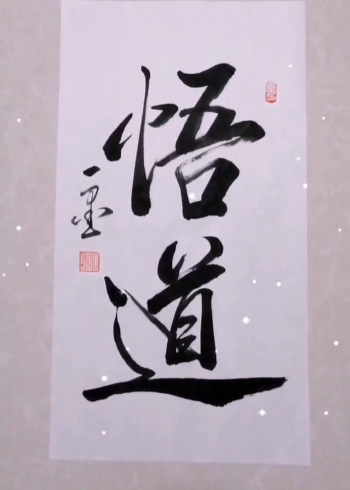 悟道
一墨